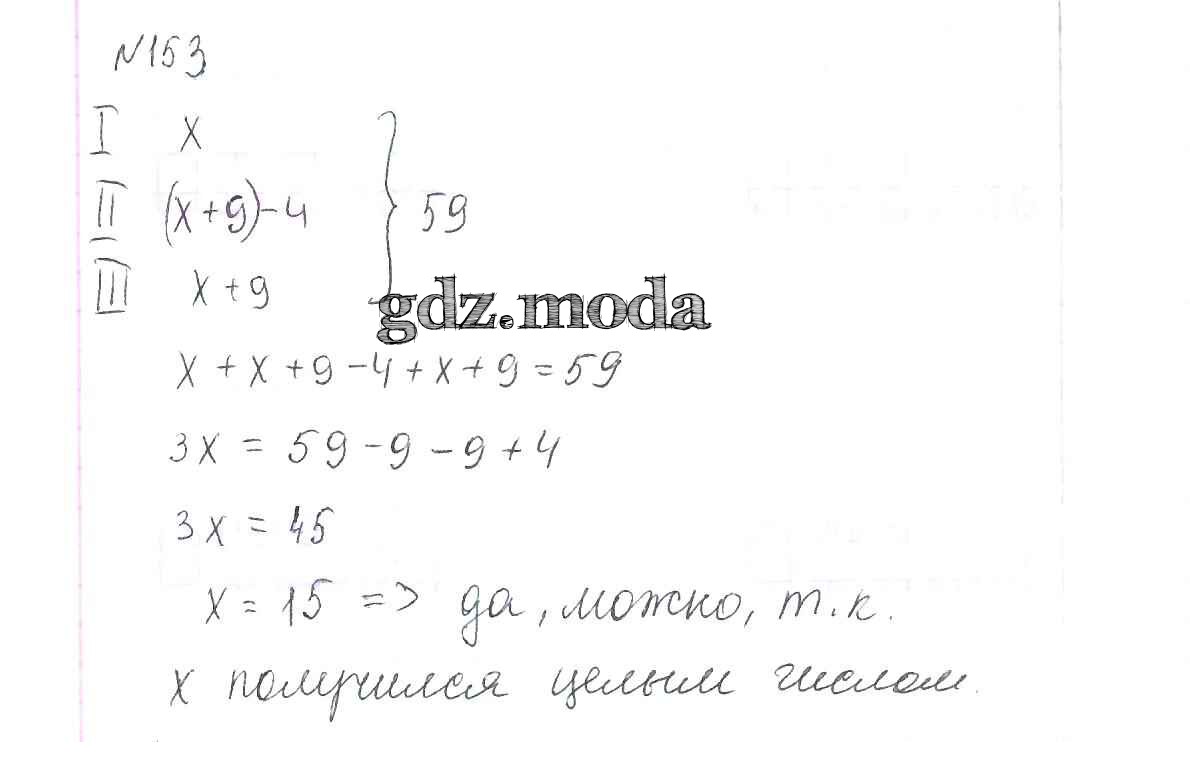 №153
I x
II (x+9)-4
59
III x+9
gdz.moda
x + x + 9 - 4 + x + 9 = 59
3x = 59 - 9 - 9 + 4
3x = 45
x = 15 => да, можно, т.к.
x получился целым числом.